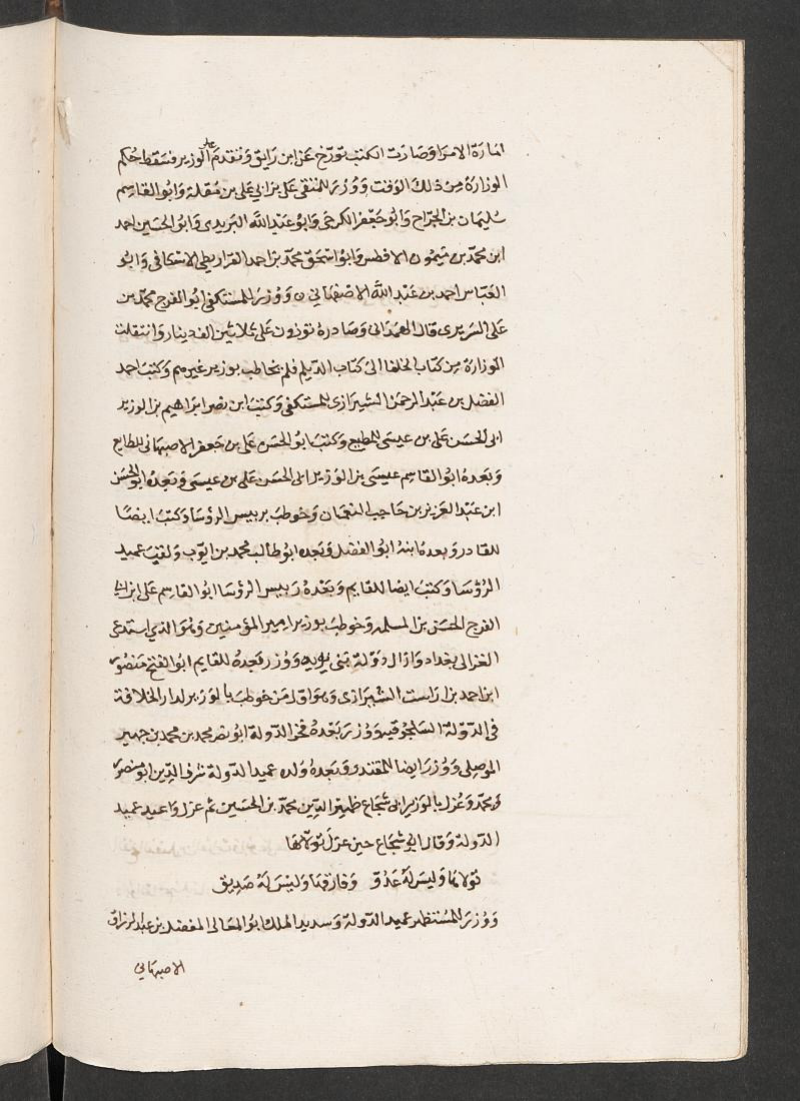 امارة الامرا وصارت الكتب تورخ عن ابن رايق وتقدم على الوزير فسقط حكم
الوزارة من ذلك الوقت ووزر للمتقى على بن ابي على بن مقلة وابو القاسم
سليمان بن الجراح وابو جعفر الكرخى وابو عبد الله البريدى وابو الحسين احمد
ابن محمد بن ميمون الافطس وابو اسحق محمد بن احمد القراريطى الاسكافى وابو
العباس احمد بن عبد الله الاصفهاني ووزر للمستكفى ابو الفرج محمد بن
على السريرى قال الهمدانى وصادره توزون على ثلاثين الف دينار وانتقلت
الوزارة من كتاب الخلفا الى كتاب الديلم فلم يخاطب بوزير غيرهم وكتب احمد
الفضل بن عبد الرحمن الشيرازى للمستكفى وكتب ابن نصر ابراهيم بن الوزير
ابى الحسن على بن عيسى للمطيع وكتب ابو الحسن على بن جعفر الاصبهانى للطايع
وبعده ابو القاسم عيسى بن الوزير ابى الحسن على بن عيسى وبعده ابو الحسن
ابن عبد العزيز بن حاجب النعمان وخوطب برييس الروسا وكتب ايضا
للقادر وبعده ابنه ابو الفضل وبعده ابو طالب محمد بن ايوب ولقب عميد
الرؤسا وكتب ايضا للقايم وبعده رييس الرؤسا ابو القاسم على بن ابى
الفرج الحسن بن المسلمه وخوطب بوزير امير المؤمنين وهو الذي استدعى
الغز الى بغداد وازال دولة بنى بويه ووزر بعده للقايم ابو الفتح منصور
ابن احمد بن دارست الشيرازى وهو اول من خوطب بالوزير لدار الخلافة
فى الدولة السلجوقيه ووزر بعده فخر الدولة ابو نصر محمد بن محمد بن جهير
الموصلى ووزر ايضا للمقتدر وبعده ولده عميد الدولة شرف الدين ابو منصور
محمد وعزل بالوزير ابى شجاع ظهير الدين محمد بن الحسين ثم عزل واعيد عميد
الدولة وقال ابو شجاع حين عزل تولاها
تولاها وليس له عدو وفارقها وليس له صديق
ووزر للمستظهر عميد الدولة وسديد الملك ابو المعالى المفضل بن عبد الرزاق
الاصبهاني